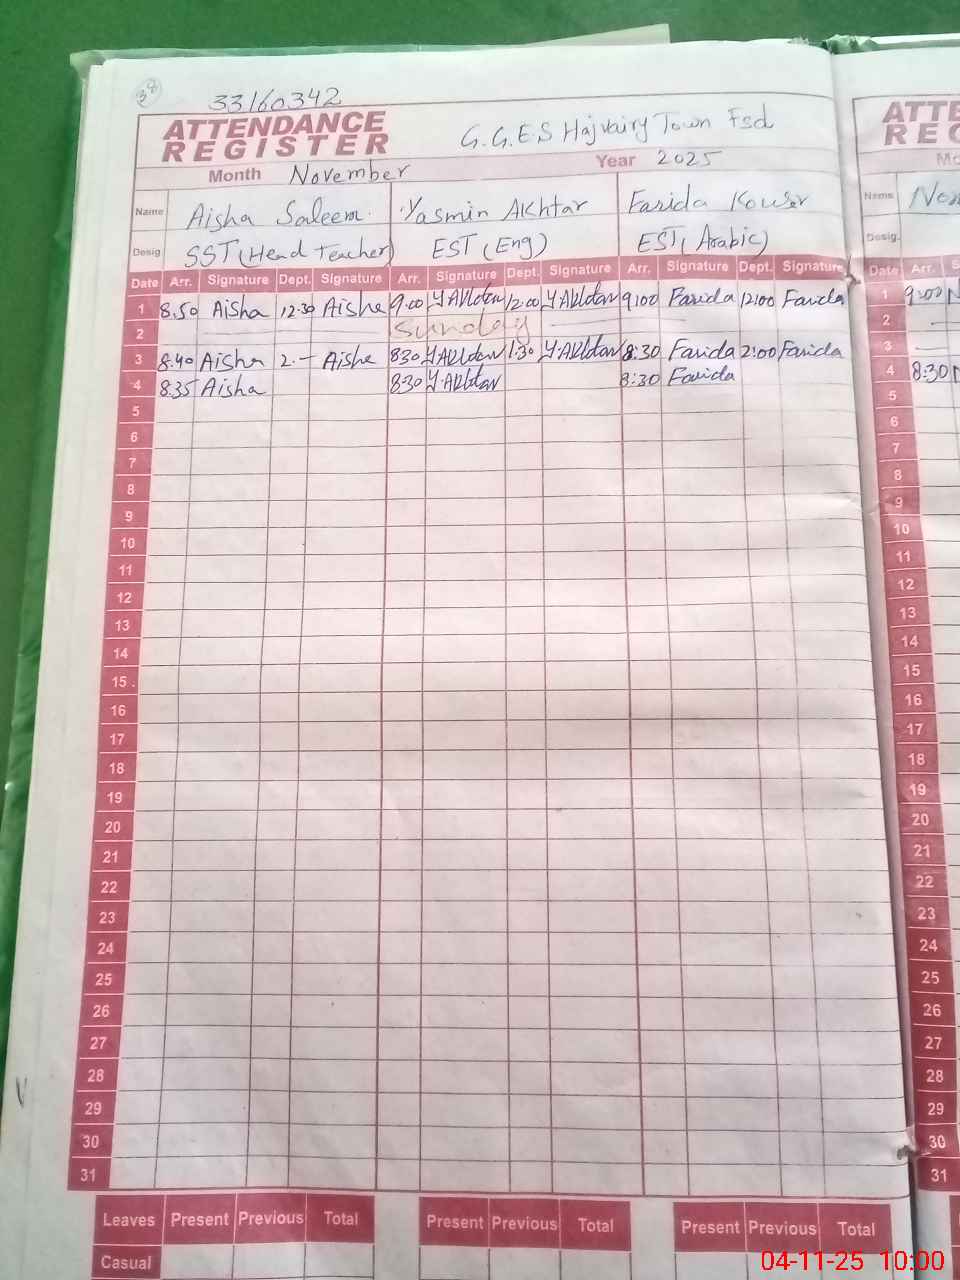 38
33160342
ATTENDANCE REGISTER G.G.E.S Hajvairy Town Fsd
Month November Year 2025
Name Aisha Saleem. Yasmin Akhtar Farida Kouser
Desig. SST (Head Teacher) EST (Eng) EST (Arabic)
Date Arr. Signature Dept. Signature Arr. Signature Dept. Signature Arr. Signature Dept. Signature
1 8.50 Aisha 12.30 Aisha 9.00 Y.Akhtar 12.00 Y.Akhtar 9:00 Farida 12:00 Farida
2 Sunday
3 8.40 Aisha 2.- Aisha 8.30 Y.Akhtar 1.30 Y.Akhtar 8:30 Farida 2:00 Farida
4 8.35 Aisha 8.30 Y.Akhtar 8:30 Farida
5
6
7
8
9
10
11
12
13
14
15
16
17
18
19
20
21
22
23
24
25
26
27
28
29
30
31
Leaves Present Previous Total Present Previous Total Present Previous Total
Casual
ATTE
REG
Mo
Name
Desig.
Date Arr. S
1 9:00
2
3
4 8:30
5
6
7
8
9
10
11
12
13
14
15
16
17
18
19
20
21
22
23
24
25
26
27
28
29
30
31
04-11-25 10:00